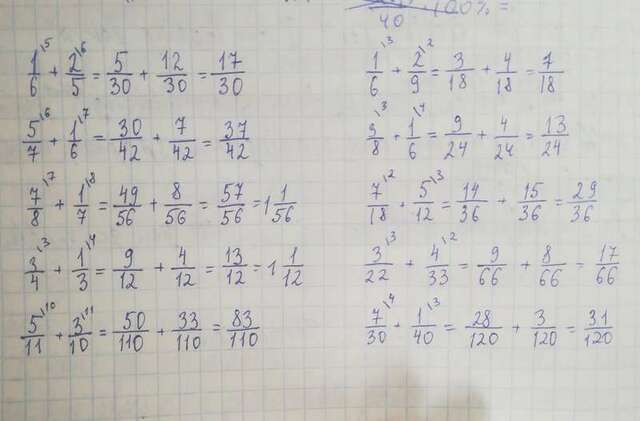 /40 · 100% =
1/6 \5 + 2/5 \6 = 5/30 + 12/30 = 17/30
5/7 \6 + 1/6 \7 = 30/42 + 7/42 = 37/42
7/8 \7 + 1/7 \8 = 49/56 + 8/56 = 57/56 = 1 1/56
3/4 \3 + 1/3 \4 = 9/12 + 4/12 = 13/12 = 1 1/12
5/11 \10 + 3/10 \11 = 50/110 + 33/110 = 83/110
1/6 \3 + 2/9 \2 = 3/18 + 4/18 = 7/18
3/8 \3 + 1/6 \4 = 9/24 + 4/24 = 13/24
7/18 \2 + 5/12 \3 = 14/36 + 15/36 = 29/36
3/22 \3 + 4/33 \2 = 9/66 + 8/66 = 17/66
7/30 \4 + 1/40 \3 = 28/120 + 3/120 = 31/120